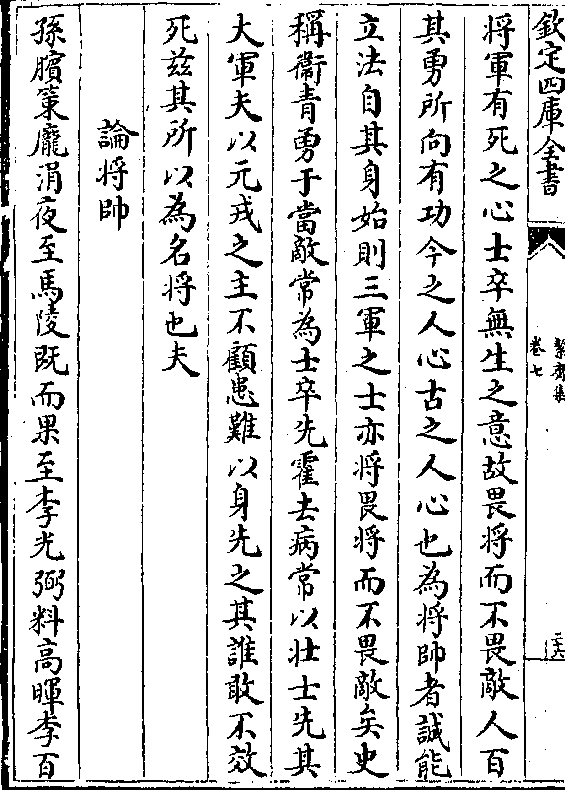 欽定四庫全書
絜齋集
卷七
二六
將軍有死之心士卒無生之意故畏將而不畏敵人百
其勇所向有功今之人心古之人心也為將帥者誠能
立法自其身始則三軍之士亦將畏將而不畏敵矣史
稱衞青勇于當敵常為士卒先霍去病常以壯士先其
大軍夫以元戎之主不顧患難以身先之其誰敢不效
死茲其所以為名將也夫
論將帥
孫臏策龐涓夜至馬陵既而果至李光弼料高暉李百